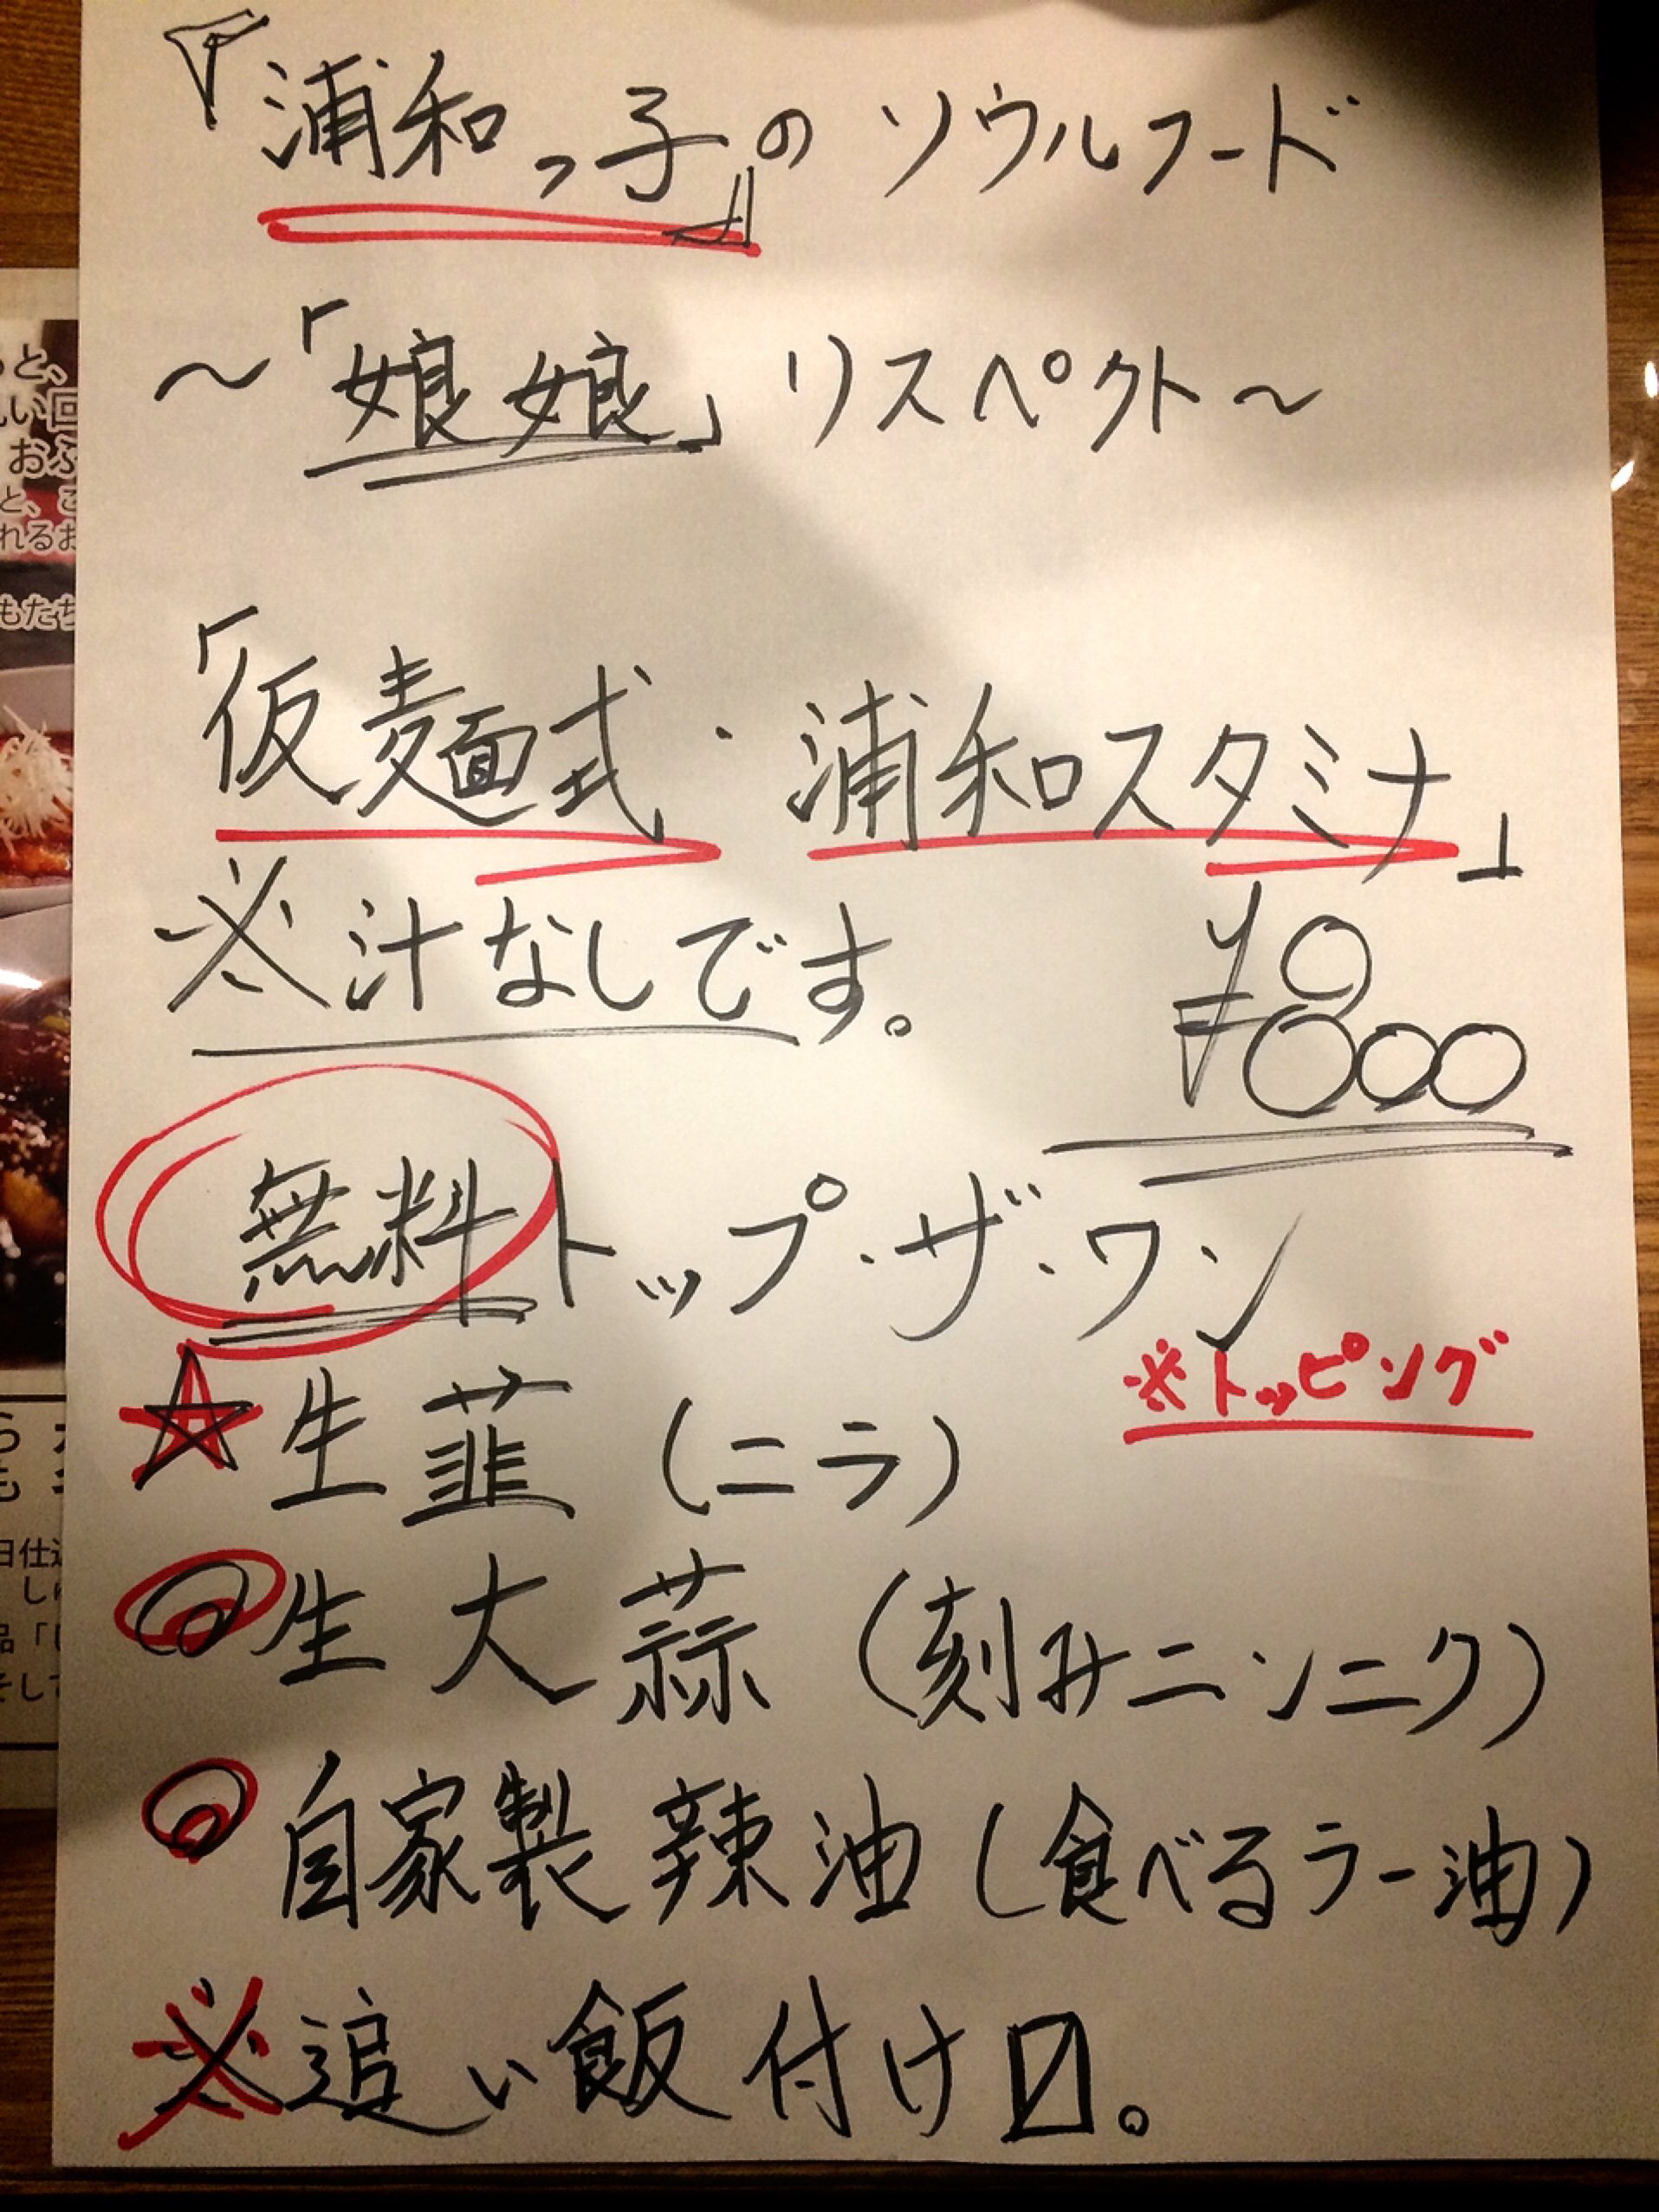 『浦和っ子』のソウルフード
〜「娘娘」リスペクト〜
「仮麺式・浦和スタミナ」
※汁なしです。
¥800
無料トップ・ザ・ワン
※トッピング
☆生韮(ニラ)
◎生大蒜(刻みニンニク)
◎自家製辣油(食べるラー油)
※追い飯付け〼。
と、
い回
おふ
れるお
もたち
日仕込